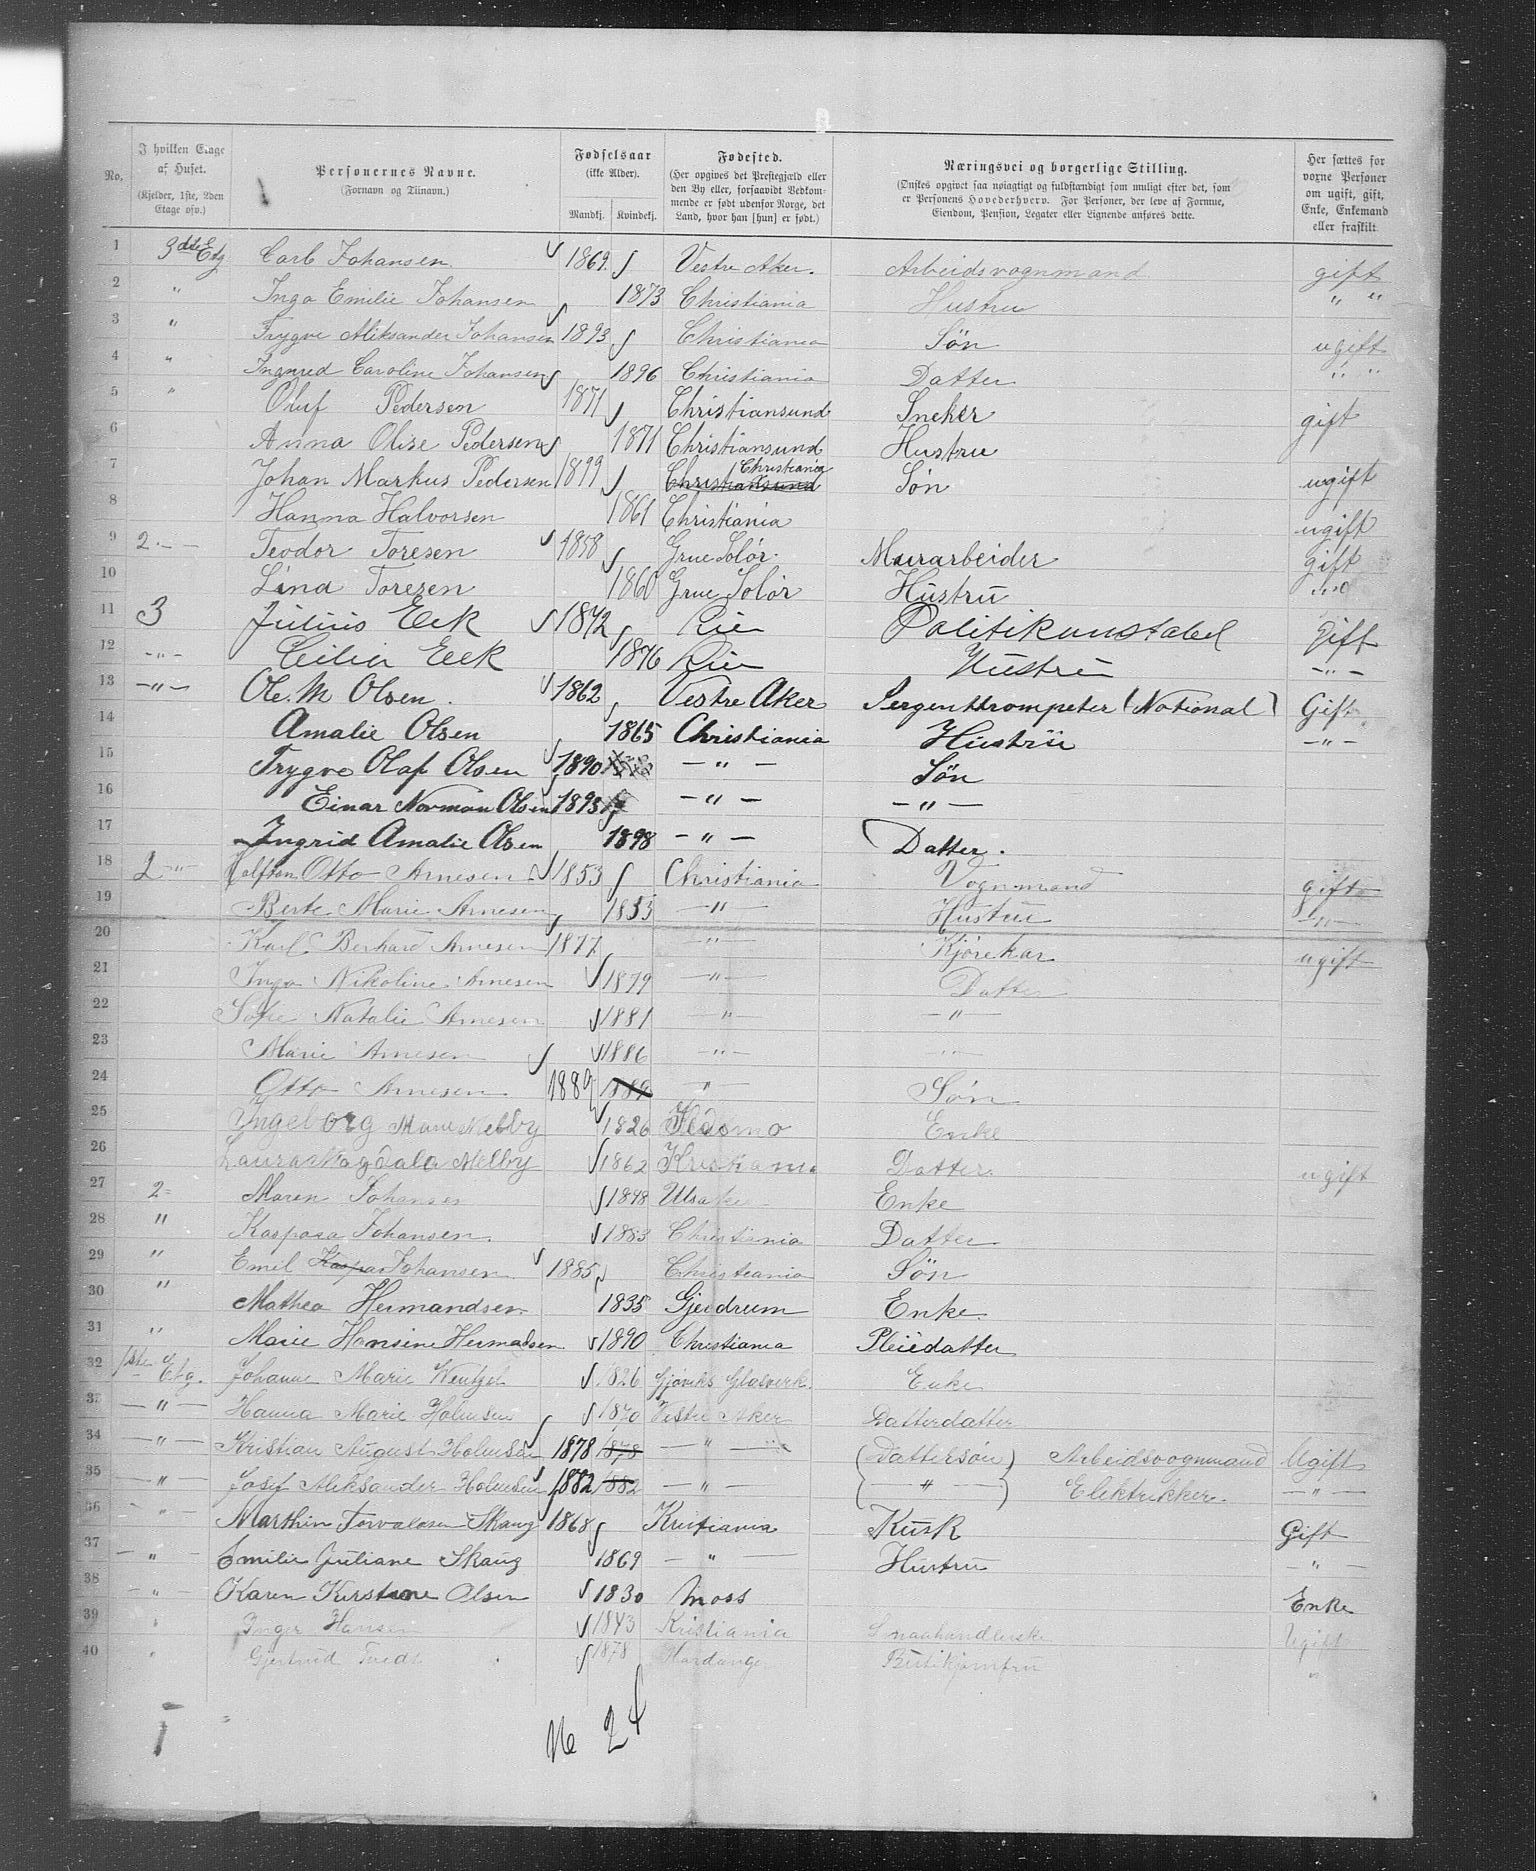 No.
I hvilken Etage af Huset. (Kjelder, 1ste, 2den Etage osv.)
Personernes Navne. (Fornavn og Tilnavn.)
Fødselsaar (ikke Alder). Mandkj. Kvindekj.
Fødested. (Her opgives det Prestegjæld eller den By eller, forsaavidt Vedkommende er født udenfor Norge, det Land, hvor han [hun] er født.)
Næringsvei og borgerlige Stilling. (Ønskes opgivet saa nøiagtigt og fuldstændigt som muligt efter det, som er Personens Hovederhverv. For Personer, der leve af Formue, Eiendom, Pension, Legater eller Lignende anføres dette.
Her sættes for voxne Personer om ugift, gift, Enke, Enkemand eller fraskilt.
1 3die Etg Carl Johansen 1869 Vestre Aker. Arbeidsvognmand gift
2 " Inga Emilie Johansen 1873 Christiania Hustru " "
3 " Trygve Aleksander Johansen 1893 Christiania Søn ugift
4 " Ingrid Caroline Johansen 1896 Christiania Datter " "
5 " Oluf Pedersen 1871 Christiansund Sneker gift
6 Anna Olise Pedersen 1871 Christiansund Hustru
7 Johan Markus Pedersen 1899 Christiansund Christiania Søn ugift
8 Hanna Halvorsen 1861 Christiania ugift
9 2 - - Teodor Toresen 1858 Grue Solør. Murarbeider gift
10 Lina Toresen 1860 Grue Solør Hustru "
11 3 Julius Eek 1872 Rie Politikonstabel Gift
12 - " - Cecilia Eek 1876 Rie Hustru - " -
13 - " - Ole. M Olsen. 1862 Vestre Aker Sergenttrompeter (National) Gift
14 Amalie Olsen 1865 Christiania Hustru - " -
15 Trygve Olaf Olsen 1890 - " - Søn
16 Einar Norman Olsen 1893 - " - - " -
17 Ingrid Amalie Olsen 1898 - " - Datter.
18 2 - " - Halfdan Otto Arnesen 1853 Christiania Vognmand gift
19 Berte Marie Arnesen 1855 - " - Hustru - " -
20 Karl Berhard Arnesen 1877 - " - Kjørekar ugift
21 Inga Nikoline Arnesen 1879 - " - Datter
22 Sofie Natalie Arnesen 1881 - " - - " -
23 Marie Arnesen 1886 - " - - " -
24 Otto Arnesen 1889 1889 " Søn
25 Ingeborg Marie Melby 1826 Hedemo Enke
26 Laura Magdala Melby 1862 Kristiania Datter ugift
27 2 = Maren Johansen 1848 Enke
28 " Kaspara Johansen 1883 Christiania Datter
29 " Emil Kaspar Johansen 1885 Christiania Søn
30 " Mathea Hermandsen 1835 Gjerdrum Enke
31 " Marie Hansine Hermadsen 1890 Christiania Pleiedatter
32 1ste Etg. Johanne Marie Wentzel 1826 Gjøviks Glasverk Enke
33 - " - Hanna Marie Holmsen 1870 Vestre Aker Datterdatter
34 - " - Kristian August Holmsen 1878 1878 - " - (Dattersøn) Arbeidsvognmand Ugift
35 - " - Josef Aleksander Holmsen 1882 1882 - " - ( - " - ) Elektrikker. - " -
36 - " - Marthin Torvalsen Skaug 1868 Kristiania Kusk Gift
37 - " - Emilie Juliane Skaug 1869 - " - Hustru " -
38 - " - Karen Kirstine Olsen 1830 Moss Enke
39 " Inger Hansen 1843 Kristiania Smaahandlerske Ugift
40 " Gjertrud Tvedt 1878 Hardanger Butikjomfru "
No 24